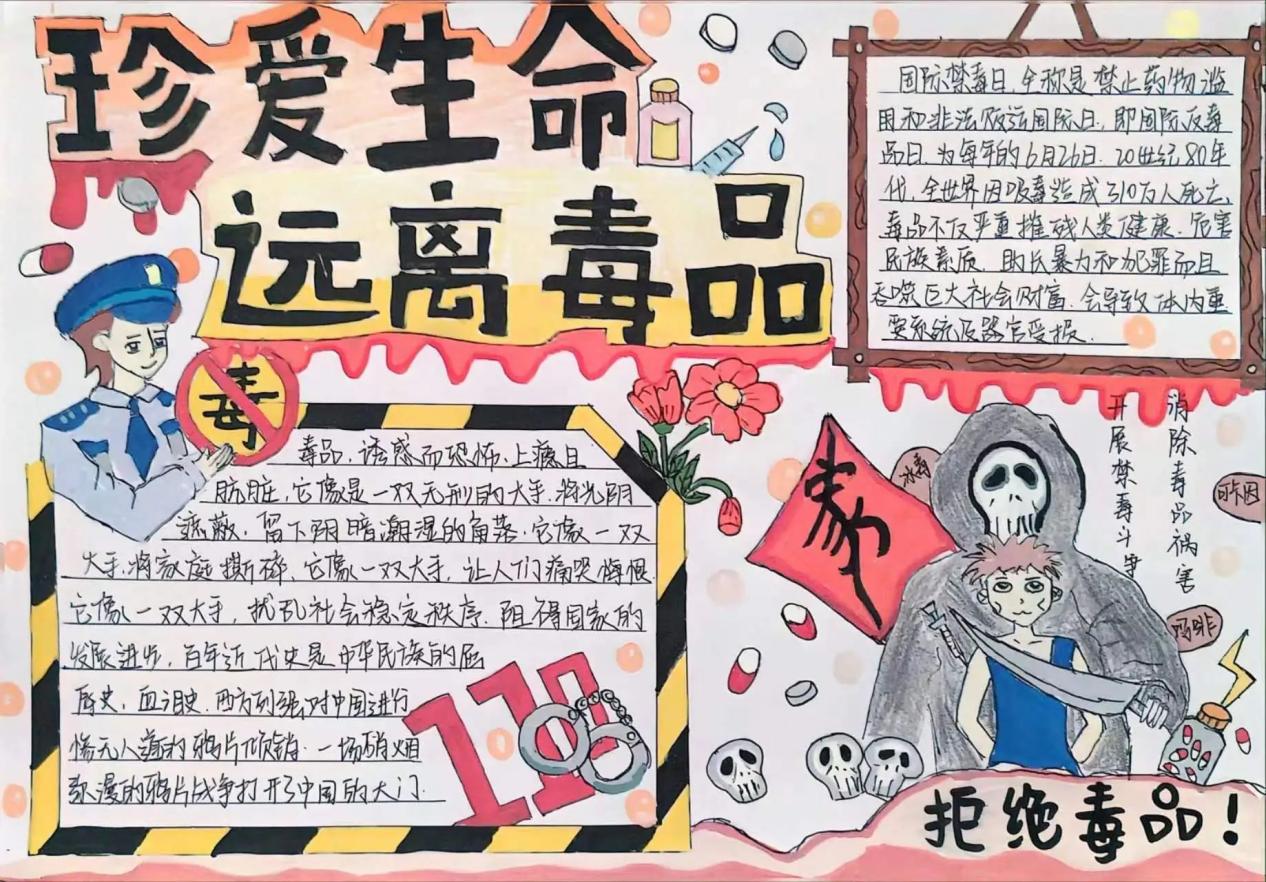 珍爱生命
远离毒品
国际禁毒日,全称是禁止药物滥
用和非法贩运国际日,即国际反毒
品日,为每年的6月26日.20世纪80年
代,全世界因吸毒造成了10万人死亡,
毒品不仅严重摧残人类健康.危害
民族素质.助长暴力和犯罪而且
吞噬巨大社会财富.会导致体内重
要系统及器官受损.
毒
毒品.诱惑而恐怖.上瘾且
肮脏,它像是一双无形的大手.将光阴
遮蔽,留下阴暗潮湿的角落.它像一双
大手,将家庭撕碎.它像一双大手,让人们痛哭悔恨.
它像一双大手,扰乱社会稳定秩序.阻碍国家的
发展进步,百年近代史是中华民族的屈
辱史,血泪史.西方列强对中国进行
惨无人道的鸦片倾销.一场硝烟
弥漫的鸦片战争打开了中国的大门.
110
冰毒
消除毒品祸害
开展禁毒斗争
可卡因
吗啡
拒绝毒品!